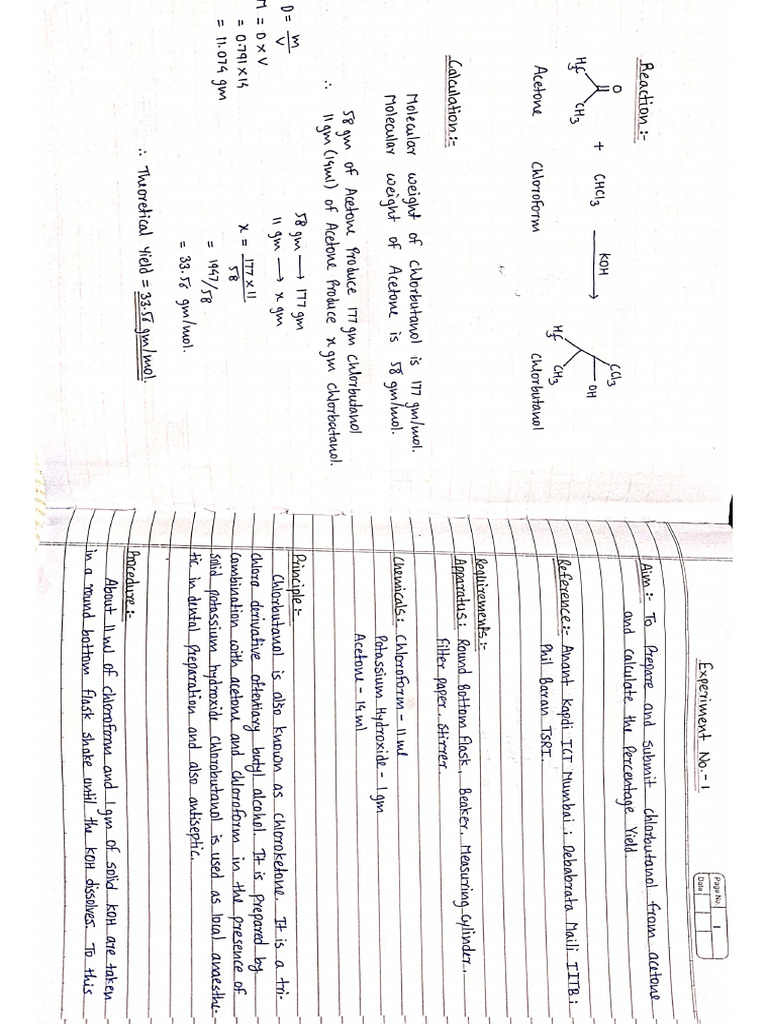 Reaction:-
O
H₃C
CH₃
+ CHCl₃
KOH
CCl₃
OH
H₃C
CH₃
Acetone
Chloroform
Chlorbutanol
Calculation:-
Molecular weight of chlorbutanol is 177 gm/mol.
Molecular weight of Acetone is 58 gm/mol.
58 gm of Acetone Produce 177 gm chlorbutanol
∴ 11 gm (14ml) of Acetone Produce x gm chlorbutanol.
D = m/V
M = D x V
= 0.791 x 14
= 11.074 gm
58 gm → 177 gm
11 gm → x gm
x = 177 x 11 / 58
= 1947/58
= 33.56 gm/mol.
∴ Theoretical Yield = 33.56 gm/mol.
Page No. 1
Date
Experiment No.-1
Aim:- To Prepare and submit chlorbutanol from acetone
and calculate the Percentage Yield.
Reference:- Anant Kapdi ICT Mumbai ; Debabrata Maili IITB ;
Phil Baran TSRI.
Requirements:-
Apparatus: Round Bottom flask, Beaker, Measuring cylinder,
filter paper, Stirrer.
Chemicals: Chloroform - 11ml
Potassium Hydroxide - 1gm
Acetone - 14ml
Principle:-
Chlorbutanol is also known as chloroketone. It is a tri-
chloro derivative oftentiary butyl alcohol. It is prepared by
combination with acetone and chloroform in the presence of
solid potassium hydroxide chlorobutanol is used as local anaesthe-
tic in dental preparation and also antiseptic.
Procedure:-
About 11ml of chloroform and 1gm of solid KOH are taken
in a round bottom flask shake until the KOH dissolves. To this